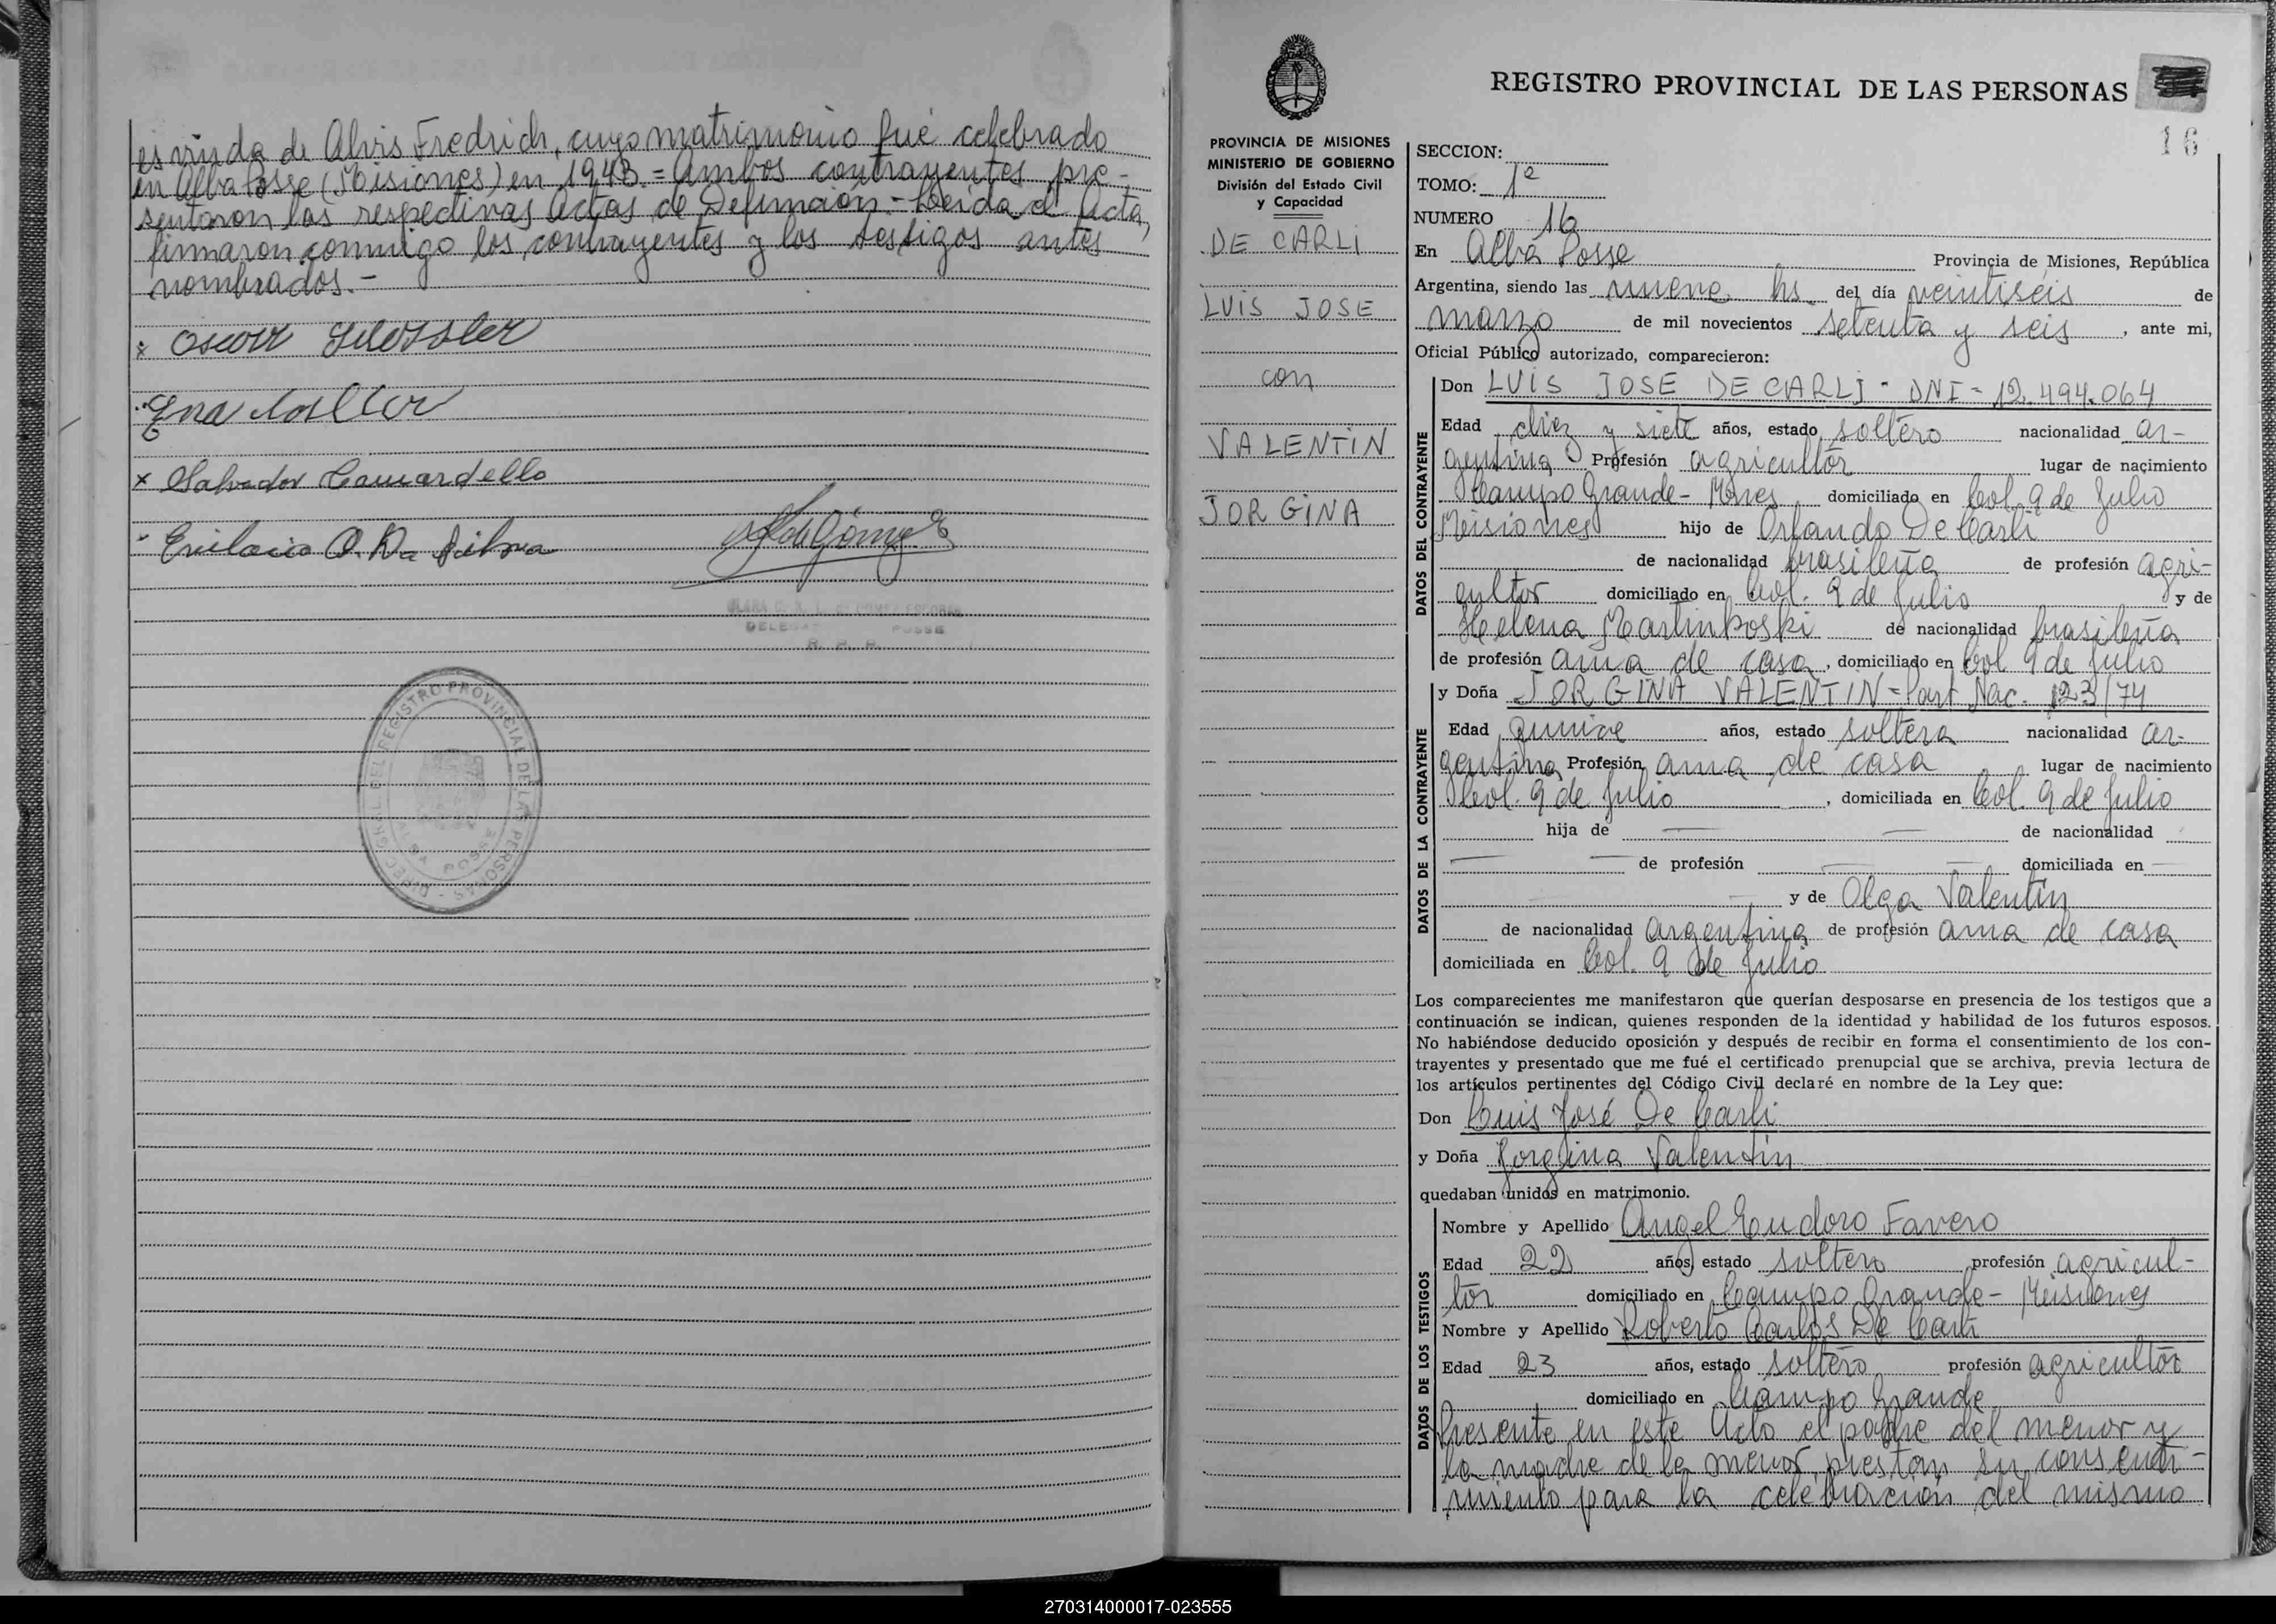 es viuda de Alvis Fredrich, cuyo matrimonio fué celebrado
en Alba Posse (Misiones) en 1943.= Ambos contrayentes pre-
sentaron las respectivas Actas de Defunción.- Leida el Acta,
firmaron conmigo los contrayentes y los testigos antes
nombrados.-
x Oscar
Ena
x Salvador Camardello
O. Da Silva
DIRECC. GRAL. DEL REGISTRO PROVINCIAL DE LAS PERSONAS
ALBA POSSE
REGISTRO PROVINCIAL DE LAS PERSONAS
16
PROVINCIA DE MISIONES
MINISTERIO DE GOBIERNO
División del Estado Civil
y Capacidad
DE CARLI
LUIS JOSE
con
VALENTIN
JORGINA
SECCION:
TOMO: 1º
NUMERO 16
En Alba Posse Provincia de Misiones, República
Argentina, siendo las nueve hs. del día veintiseis de
marzo de mil novecientos setenta y seis, ante mi,
Oficial Público autorizado, comparecieron:
DATOS DEL CONTRAYENTE
Don LUIS JOSE DE CARLI - DNI - 12.494.064
Edad diez y siete años, estado soltero nacionalidad ar-
gentina Profesión agricultor lugar de nacimiento
Campo Grande - Mnes domiciliado en Col. 9 de Julio
Misiones hijo de Orlando De Carli
de nacionalidad brasileña de profesión agri-
cultor domiciliado en Col. 9 de Julio y de
Helena Martinkoski de nacionalidad brasileña
de profesión ama de casa, domiciliado en Col 9 de Julio
DATOS DE LA CONTRAYENTE
y Doña JORGINA VALENTIN = Part Nac. 123/74
Edad quince años, estado soltera nacionalidad ar-
gentina Profesión ama de casa lugar de nacimiento
Col. 9 de Julio, domiciliada en Col. 9 de Julio
hija de — — de nacionalidad
— — de profesión — — domiciliada en —
— — y de Olga Valentin
de nacionalidad argentina de profesión ama de casa
domiciliada en Col. 9 de Julio
Los comparecientes me manifestaron que querían desposarse en presencia de los testigos que a
continuación se indican, quienes responden de la identidad y habilidad de los futuros esposos.
No habiéndose deducido oposición y después de recibir en forma el consentimiento de los con-
trayentes y presentado que me fué el certificado prenupcial que se archiva, previa lectura de
los artículos pertinentes del Código Civil declaré en nombre de la Ley que:
Don Luis José De Carli
y Doña Jorgina Valentin
quedaban unidos en matrimonio.
DATOS DE LOS TESTIGOS
Nombre y Apellido Angel Eudoro Favero
Edad 22 años, estado soltero profesión agricul-
tor domiciliado en Campo Grande - Misiones
Nombre y Apellido Roberto Carlos De Carli
Edad 23 años, estado soltero profesión agricultor
domiciliado en Campo Grande
Presente en este Acto el padre del menor y
la madre de la menor, prestan su consenti-
miento para la celebración del mismo
270314000017-023555